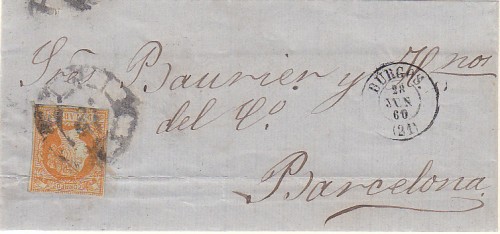 Sres Baurier y Hnos
del Co
Barcelona
BURGOS.
28
JUN
60
(21)